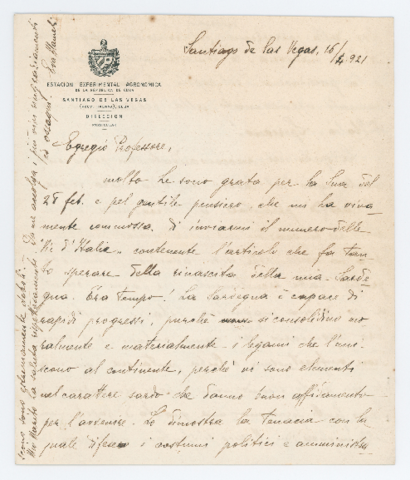 ESTACIÓN EXPERIMENTAL AGRONÓMICA
DE LA REPÚBLICA DE CUBA
SANTIAGO DE LAS VEGAS
DIRECCIÓN
Santiago de las Vegas, 15/4 921
Egregio Professore,
molto Le sono grata per la Sua del
28 feb. e pel gentile pensiero, che mi ha viva-
mente commossa, di inviarmi il numero delle
"Vie d'Italia" contenente l'articolo che fa tan-
to sperare della rinascita della mia Sarde-
gna. Era tempo! La Sardegna è capace di
rapidi progressi, purchè si consolidino mo-
ralmente e materialmente i legami che l'uni-
scono al continente, perchè vi sono elementi
nel carattere sardo che danno buon affidamento
per l'avvenire. Lo dimostra la tenacia con la
quale difese i costumi politici e amministra-
scono sono estremamente labili.
Mio Marito La saluta rispettosamente. Da me accolga i più vivi ringraziamenti
ed ossequi. Eva Mameli